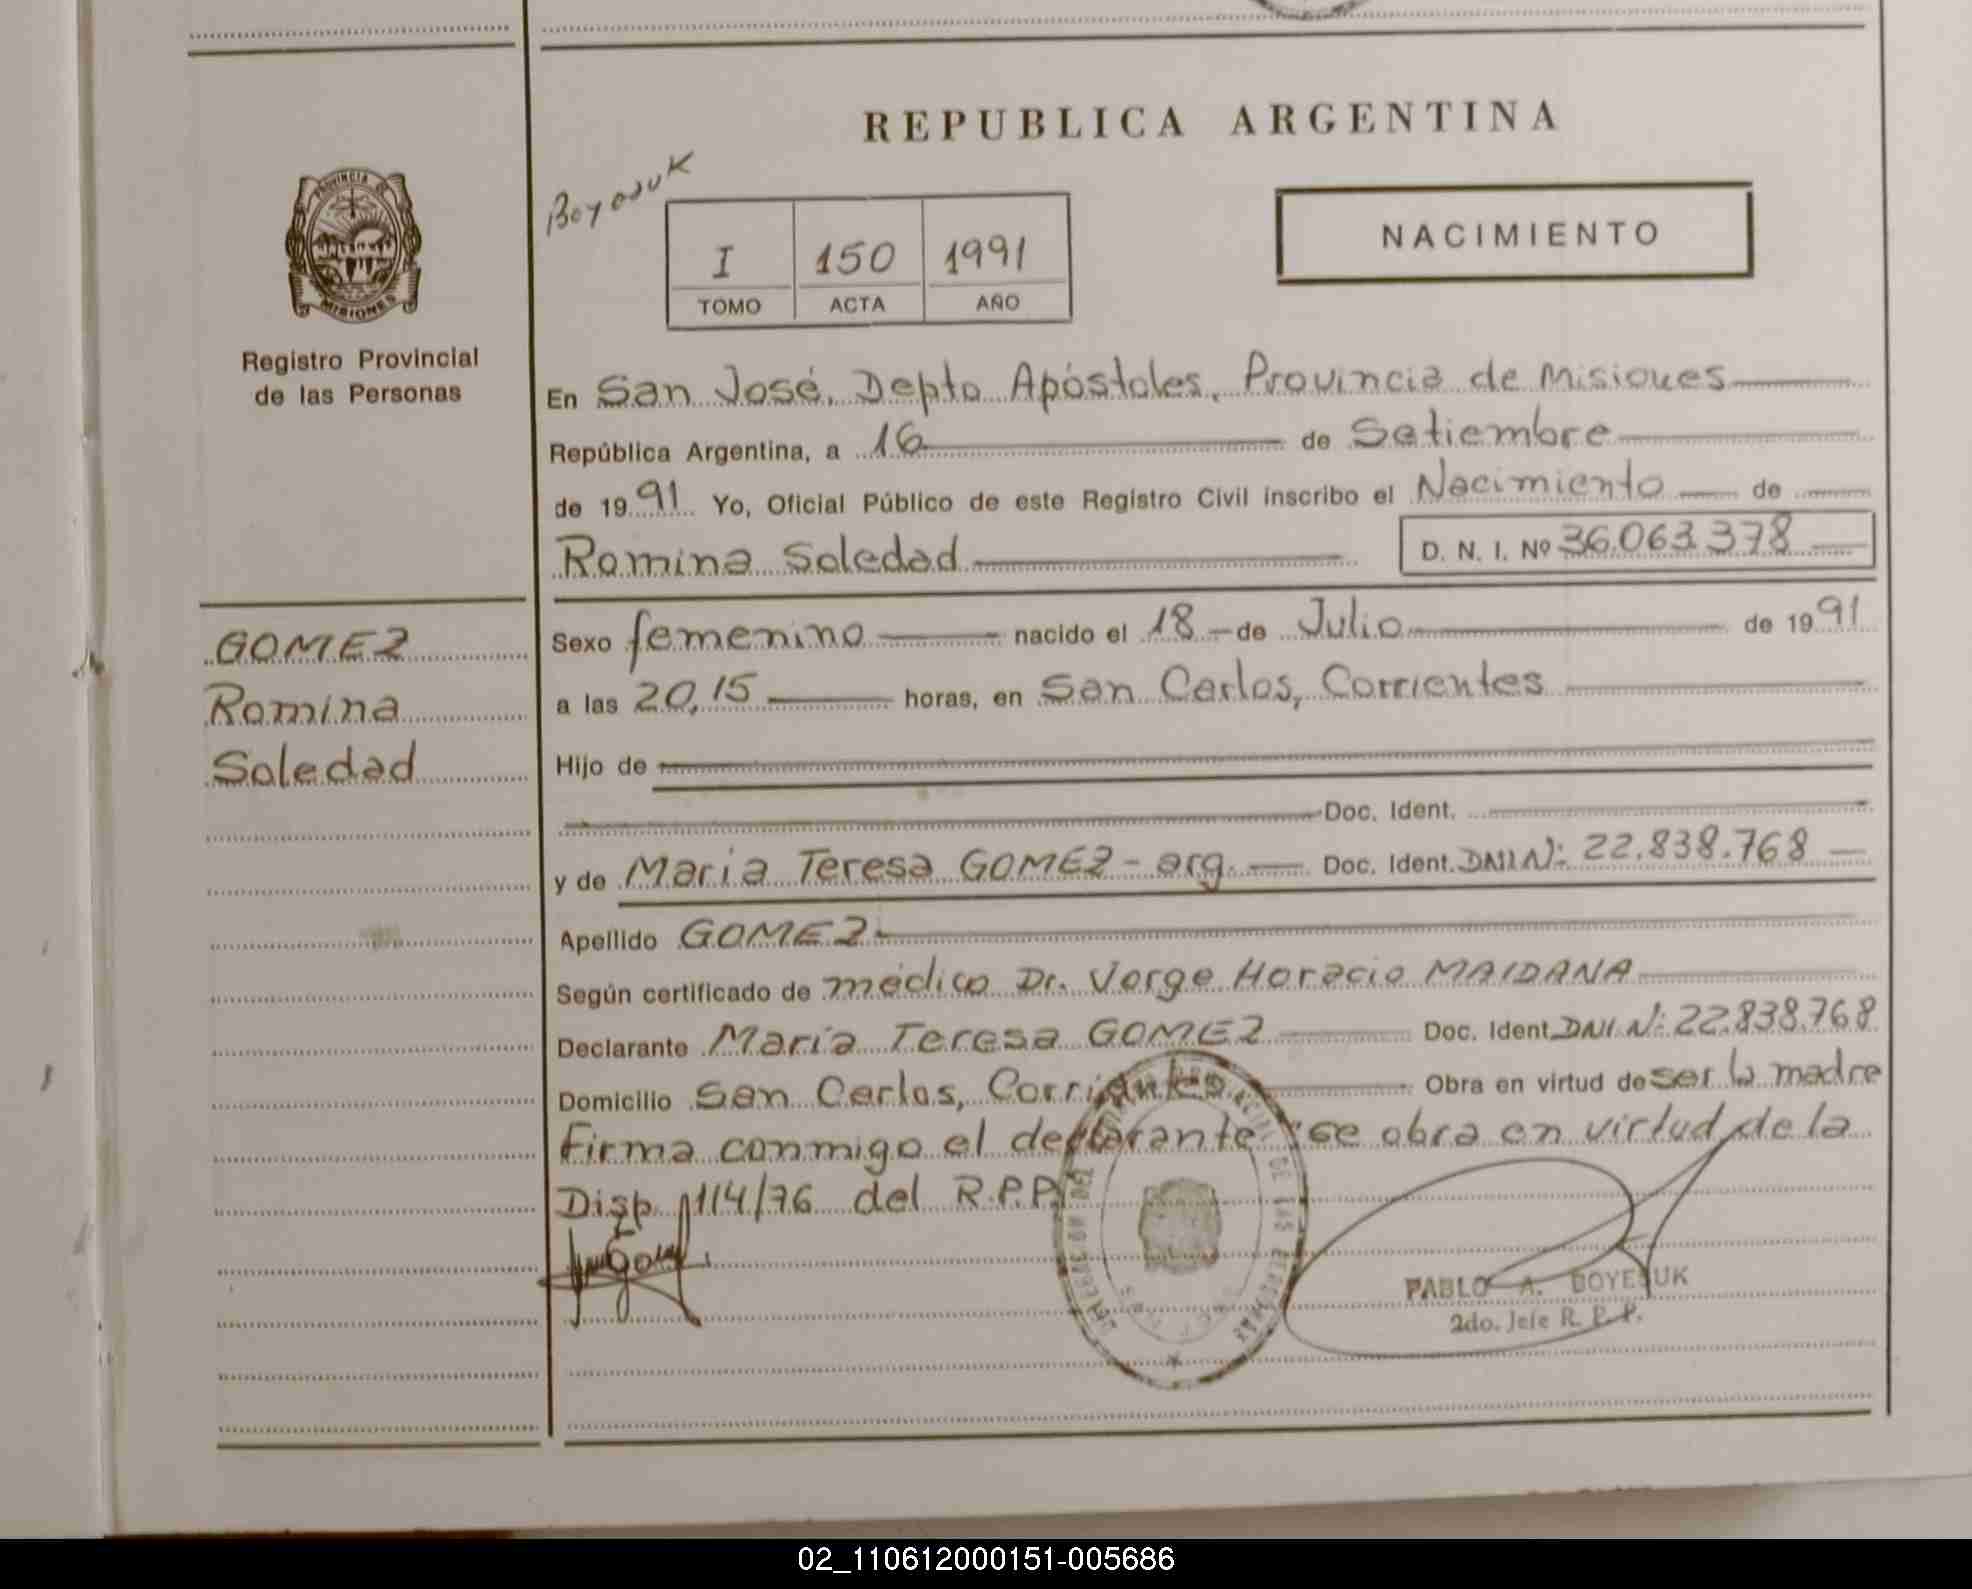 REPUBLICA ARGENTINA
PROVINCIA DE
MISIONES
Registro Provincial
de las Personas
Boyesuk
I 150 1991
TOMO ACTA AÑO
NACIMIENTO
En San José, Depto Apóstoles, Provincia de Misiones
República Argentina, a 16 de Setiembre
de 1991 Yo, Oficial Público de este Registro Civil inscribo el Nacimiento de
Romina Soledad D. N. I. Nº 36.063.378
GOMEZ
Romina
Soledad
Sexo femenino nacido el 18 de Julio de 1991
a las 20,15 horas, en San Carlos, Corrientes
Hijo de
Doc. Ident.
y de Maria Teresa GOMEZ - arg. Doc. Ident. DNI Nº: 22.838.768
Apellido GOMEZ
Según certificado de médico Dr. Jorge Horacio MAIDANA
Declarante María Teresa GOMEZ Doc. Ident. DNI Nº: 22.838.768
Domicilio San Carlos, Corrientes Obra en virtud de ser la madre
Firma conmigo el declarante se obra en virtud de la
Disp 114/76 del R.P.P.
PABLO A. BOYESUK
2do. Jefe R. P. P.
02_110612000151-005686